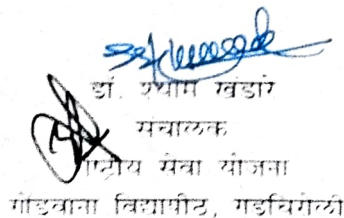 डॉ. श्याम खंडारे
संचालक
राष्ट्रीय सेवा योजना
गोंडवाना विद्यापीठ, गडचिरोली